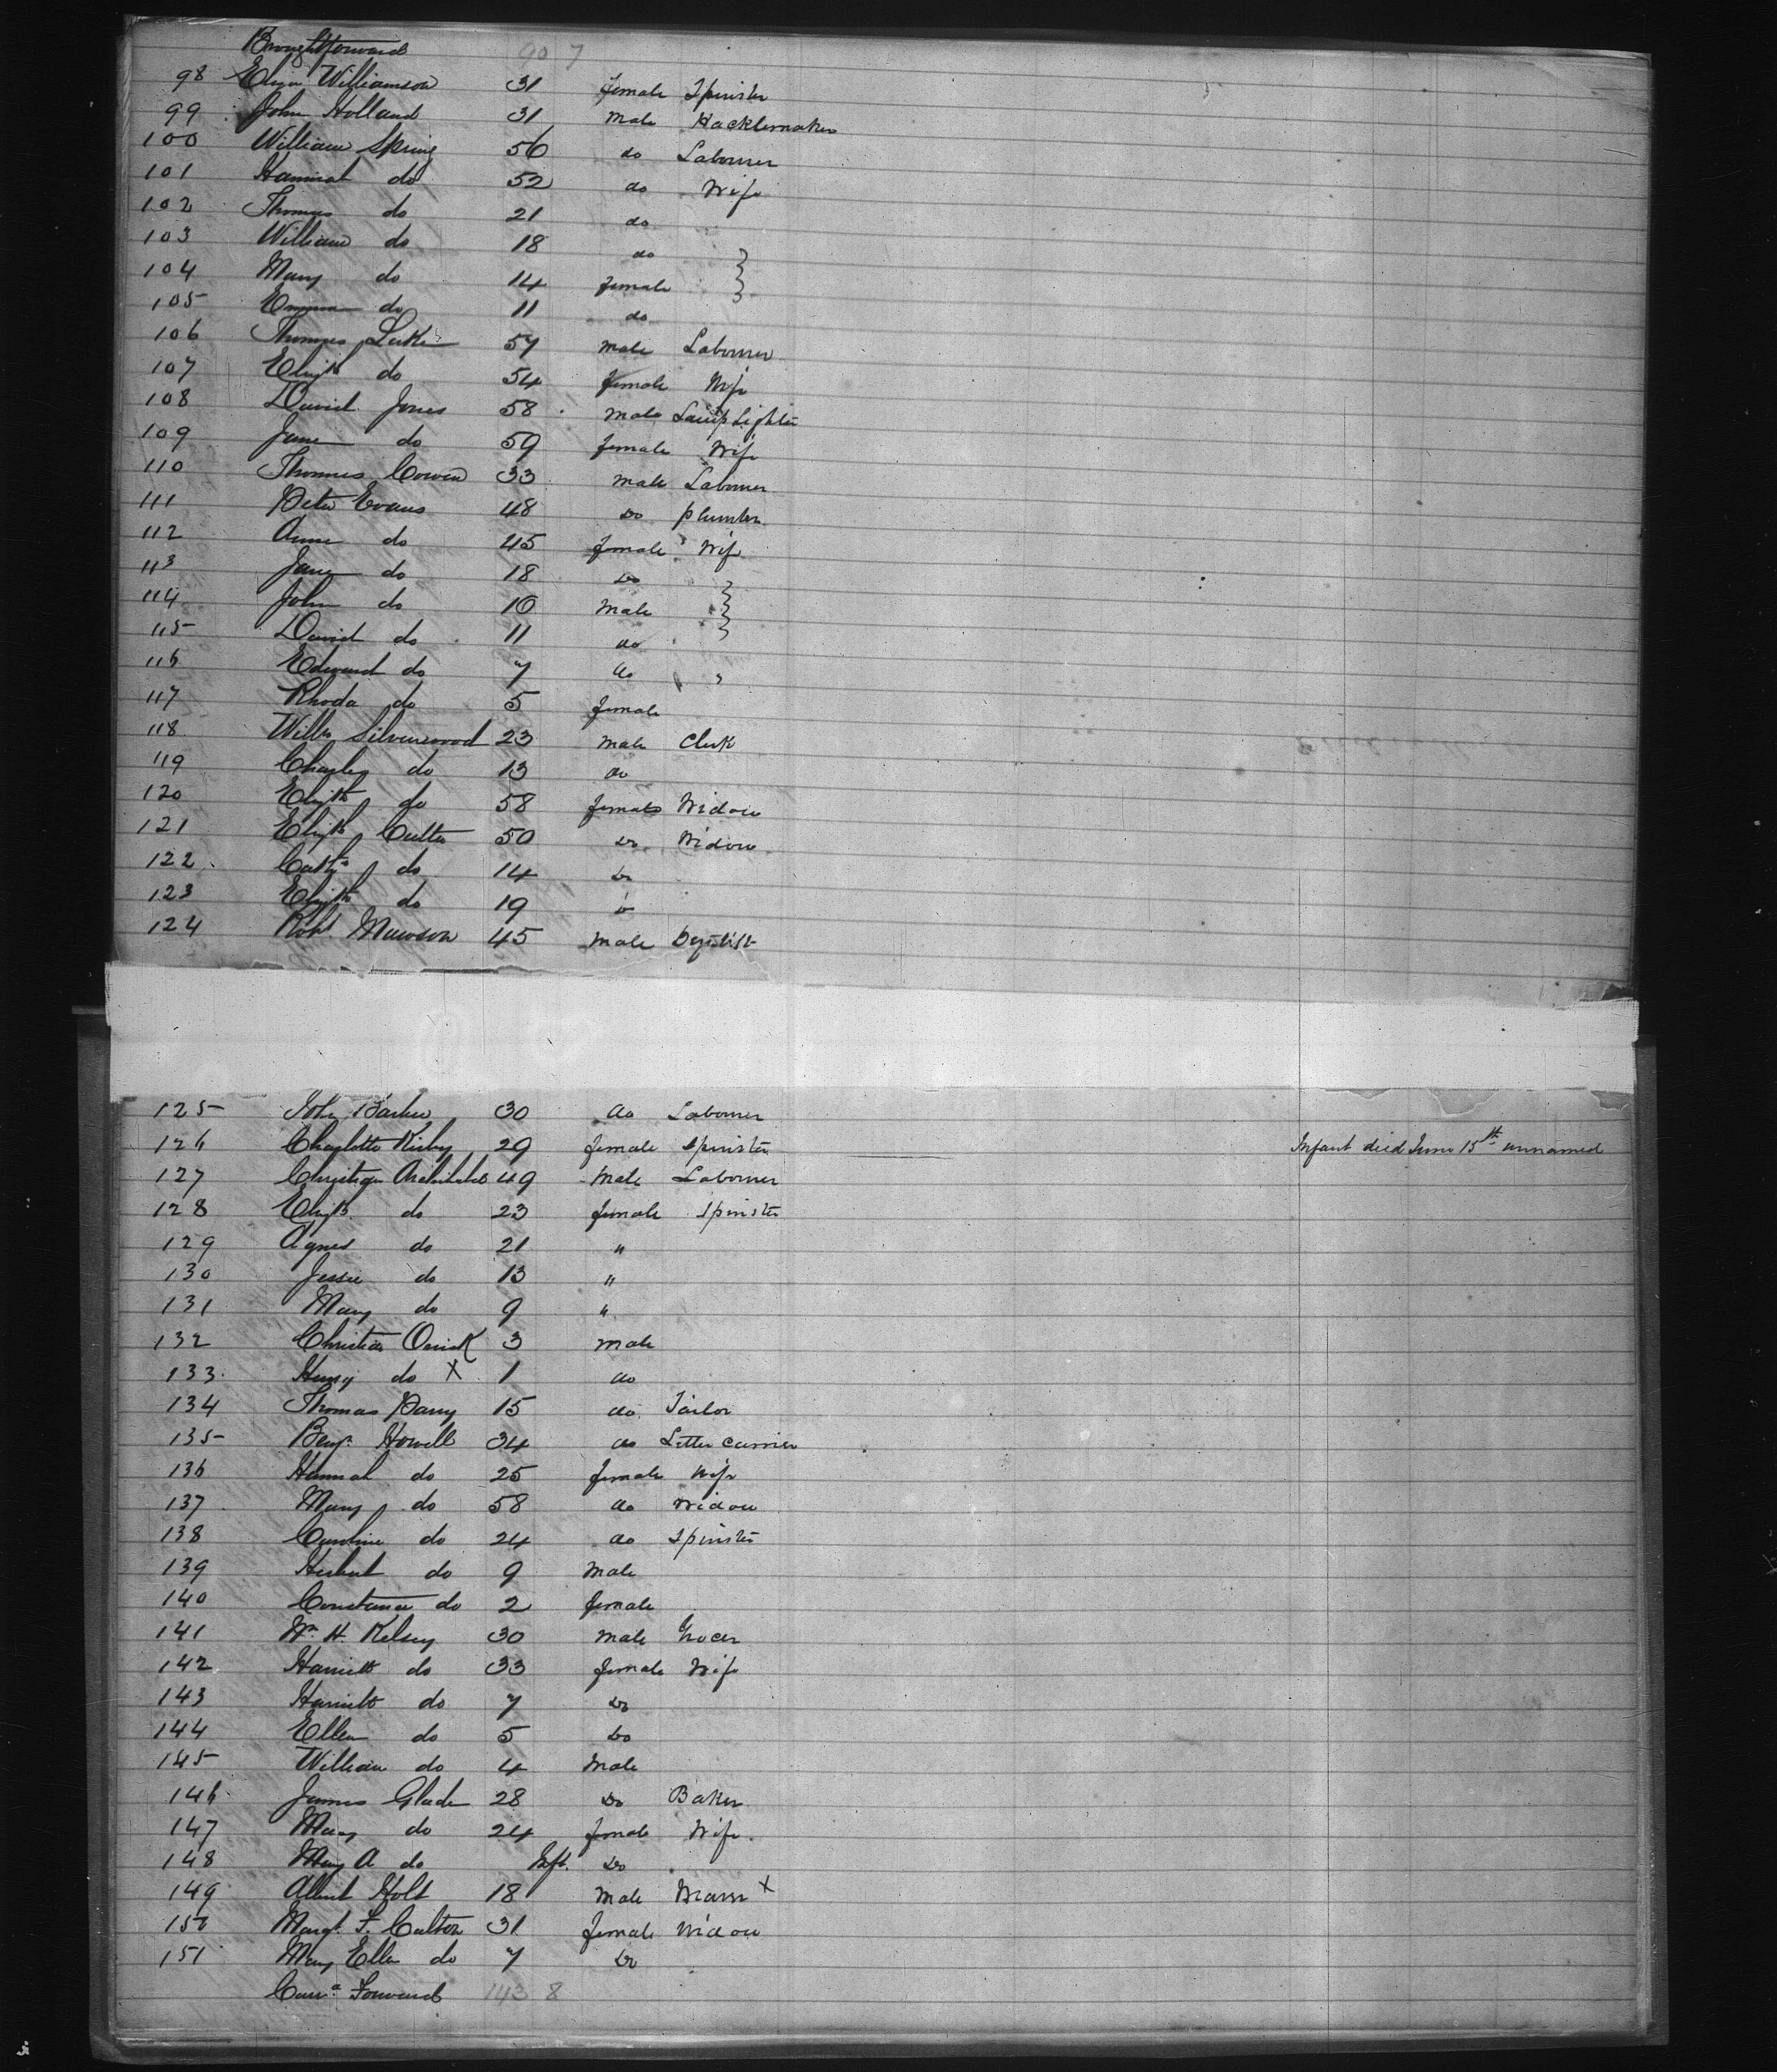 Brought forward 90 7
98 Eliza Williamson 31 female Spinster
99 John Holland 31 male Hacklemaker
100 William Spring 56 do Labourer
101 Hannah do 52 do Wife
102 Thomas do 21 do
103 William do 18 do
104 Mary do 14 female
105 Emma do 11 do
106 Thomas Luke 57 male Labourer
107 Elizth do 54 female Wife
108 David Jones 58 male Lamp Lighter
109 Jane do 59 female Wife
110 Thomas Cowen 33 male Labourer
111 Peter Evans 48 Do plumber
112 Anne do 45 female Wife
113 Jane do 18 Do
114 John do 16 male
115 David do 11 do
116 Edward do 7 do
117 Rhoda do 5 female
118 Willm Silverwood 23 male Clerk
119 Charles do 13 do
120 Elizth do 58 female Widow
121 Elizth 50 Do Widow
122 Cathe do 14 Do
123 Elizth do 19 Do
124 Robt Mawson 45 male
125 John Barker 30 do Labourer
126 Charlotte Kirby 29 female Spinster Infant died June 15th unnamed
127 49 Male Labourer
128 Elizth do 23 female Spinster
129 Agnes do 21 "
130 Jessie do 13 "
131 Mary do 9 "
132 Christian 3 male
133 Henry do X 1 do
134 Thomas Parry 15 do Tailor
135 Benjn Howell 34 do Letter carrier
136 Hannah do 25 female Wife
137 Mary do 58 do Widow
138 Caroline do 24 do Spinster
139 Herbert do 9 Male
140 Constance do 2 female
141 Wm H. Kelsey 30 male Grocer
142 Harriett do 33 female Wife
143 Harriett do 7 Do
144 Ellen do 5 Do
145 William do 4 Male
146 James Glade 28 Do Baker
147 Mary do 24 female Wife
148 Mary A do Inft. Do
149 Albert Holt 18 Male X
150 Margt F. Calton 31 female Widow
151 Mary Ellen do 7 Do
Carrd Forward 143 8